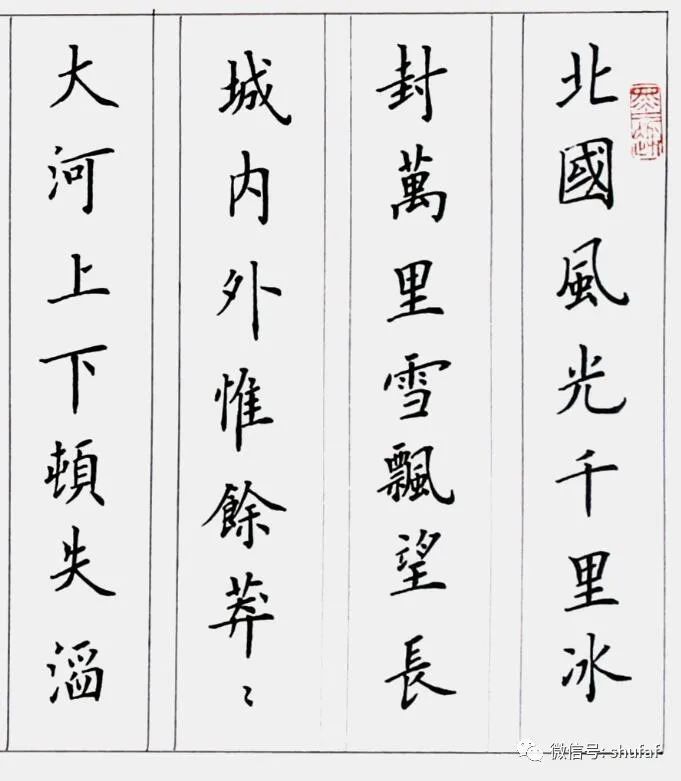 北國風光千里冰
封萬里雪飄望長
城内外惟餘莽〻
大河上下頓失滔
微信号: shufaf